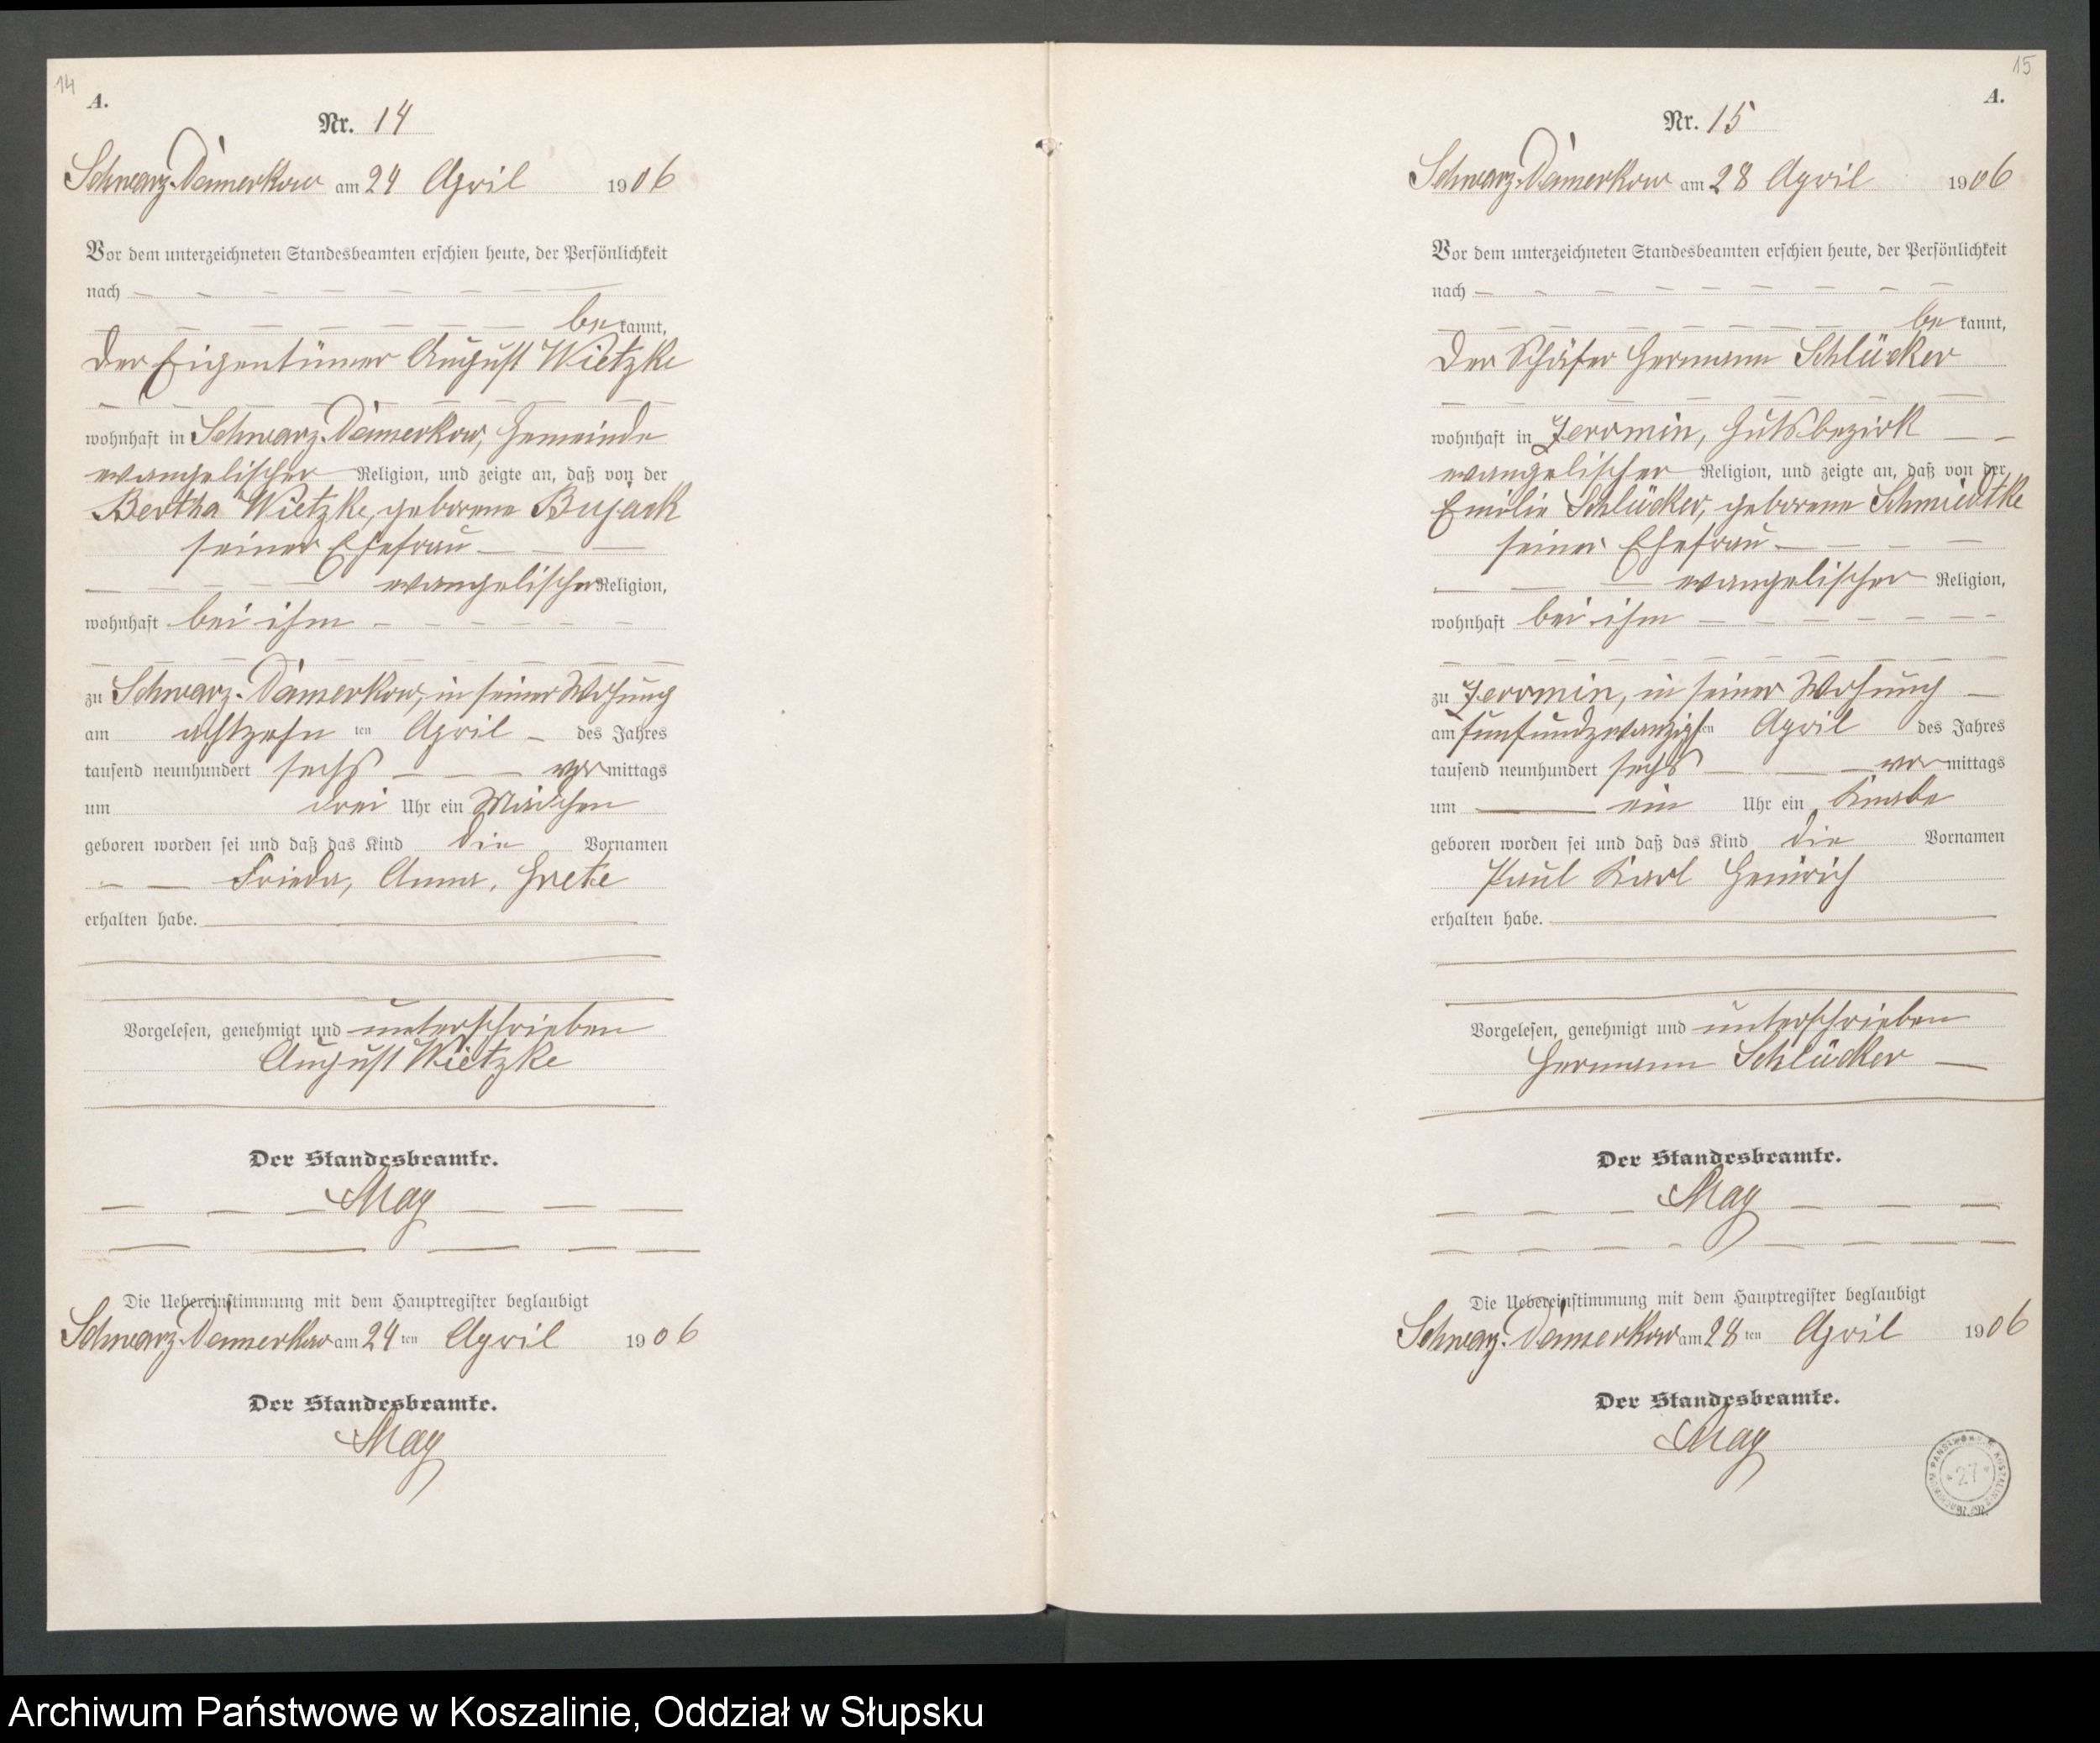 14
A.
Nr. 14
Schwarz-Damerkow am 24 April 1906
Vor dem unterzeichneten Standesbeamten erschien heute, der Persönlichkeit
nach
bekannt,
der Eigentümer August Wietzke
wohnhaft in Schwarz-Damerkow, Gemeinde
evangelischer Religion, und zeigte an, daß von der
Bertha Wietzke, geborene Bujack
seiner Ehefrau
evangelischer Religion,
wohnhaft bei ihm
zu Schwarz-Damerkow, in seiner Wohnung
am achtzehn ten April des Jahres
tausend neunhundert sechs vormittags
um drei Uhr ein Mädchen
geboren worden sei und daß das Kind die Vornamen
Frieda, Anna, Grete
erhalten habe.
Vorgelesen, genehmigt und unterschrieben
August Wietzke
Der Standesbeamte.
May
Die Uebereinstimmung mit dem Hauptregister beglaubigt
Schwarz-Damerkow am 24 ten April 1906
Der Standesbeamte.
May
15
A.
Nr. 15
Schwarz-Damerkow am 28 April 1906
Vor dem unterzeichneten Standesbeamten erschien heute, der Persönlichkeit
nach
bekannt,
der Schäfer Hermann Schlücker
wohnhaft in Jerrmin, Gutsbezirk
evangelischer Religion, und zeigte an, daß von der
Emilie Schlücker, geborene Schmidtke
seiner Ehefrau
evangelischer Religion,
wohnhaft bei ihm
zu Jerrmin, in seiner Wohnung
am fünfundzwanzigsten April des Jahres
tausend neunhundert sechs vormittags
um ein Uhr ein Knabe
geboren worden sei und daß das Kind die Vornamen
Paul Karl Heinrich
erhalten habe.
Vorgelesen, genehmigt und unterschrieben
Hermann Schlücker
Der Standesbeamte.
May
Die Uebereinstimmung mit dem Hauptregister beglaubigt
Schwarz-Damerkow am 28 ten April 1906
Der Standesbeamte.
May
27
Archiwum Państwowe w Koszalinie, Oddział w Słupsku